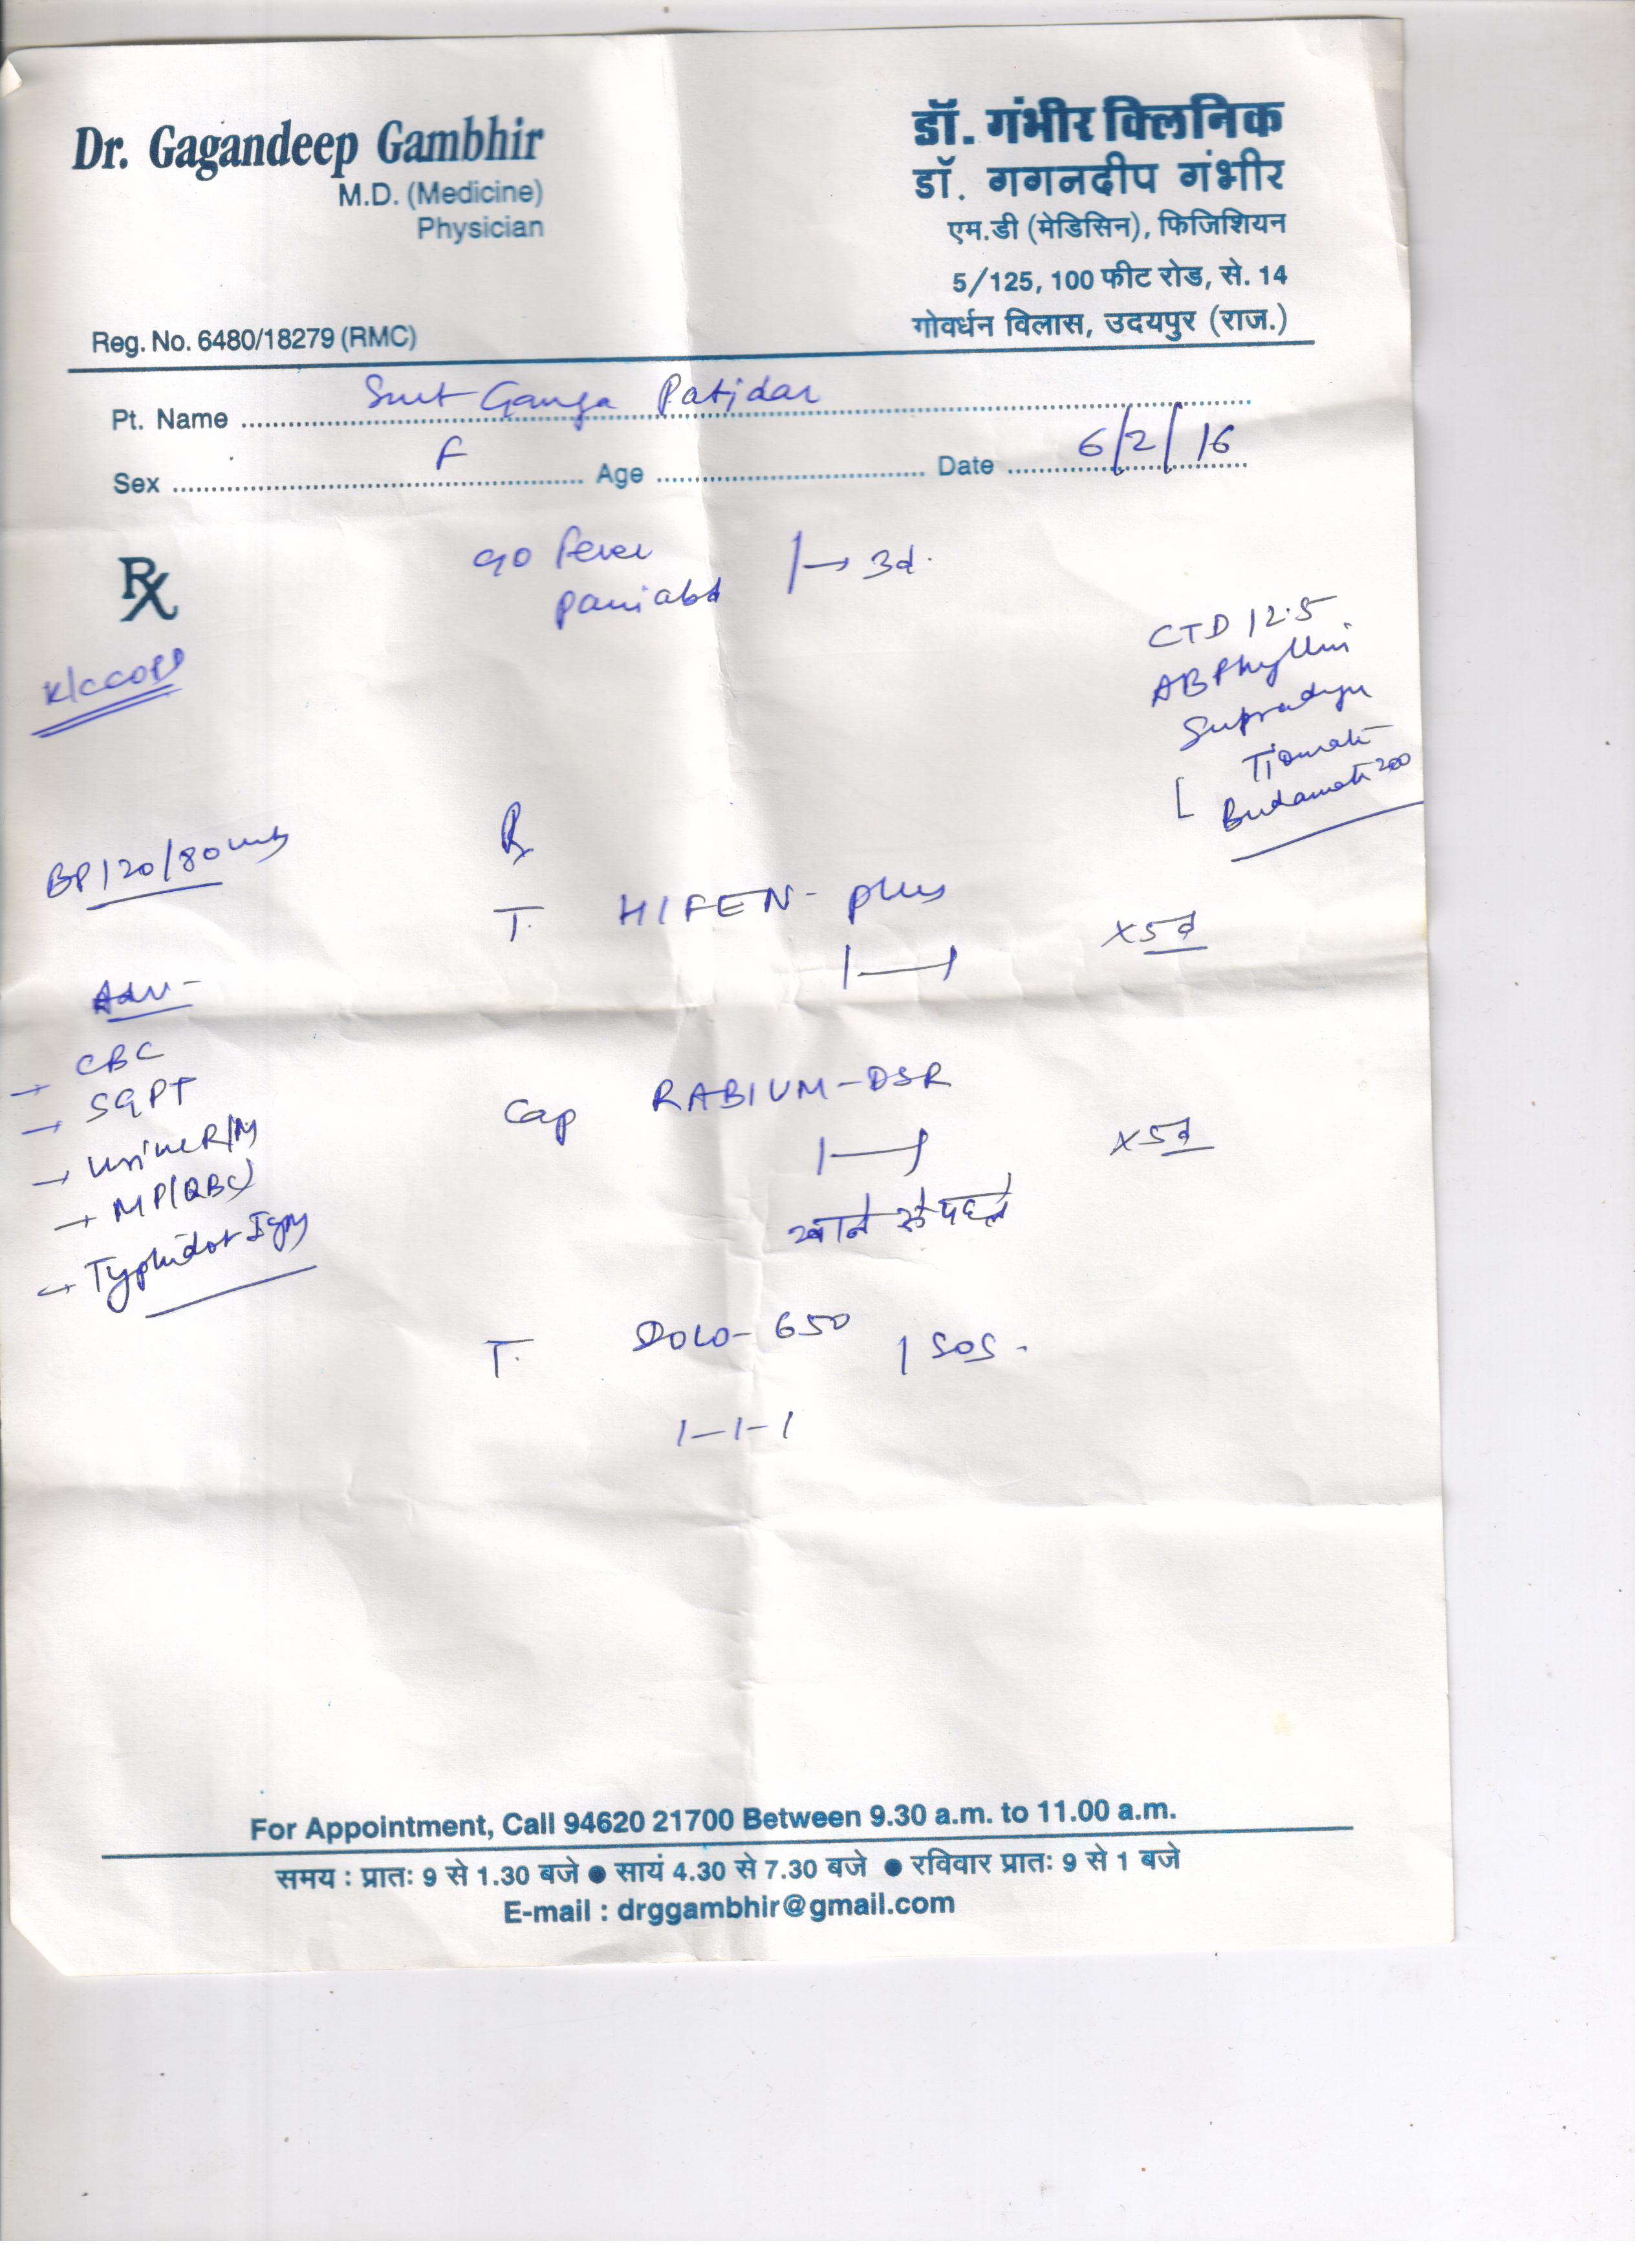 Dr. Gagandeep Gambhir
M.D. (Medicine)
Physician
Reg. No. 6480/18279 (RMC)
डॉ. गंभीर क्लिनिक
डॉ. गगनदीप गंभीर
एम.डी (मेडिसिन), फिजिशियन
5/125, 100 फीट रोड, से. 14
गोवर्धन विलास, उदयपुर (राज.)
Pt. Name Smt Ganga Patidar
Sex F Age Date 6/2/16
Rx
c/o fever
pain abd → 3d.
K/C COPD
CTD 12.5
AB Phyllin
Supradyn
Tiomate
Budamate 200
BP 120/80
Rx
T. HIFEN-plus
1—1 x5d
Adv-
→ CBC
→ SGPT
→ Urine R/M
→ MP(QBC)
→ Typhidot IgM
Cap RABIUM-DSR
1—1 x5d
खाने से पहले
T. DOLO-650 1 SOS.
1-1-1
For Appointment, Call 94620 21700 Between 9.30 a.m. to 11.00 a.m.
समय : प्रातः 9 से 1.30 बजे ● सायं 4.30 से 7.30 बजे ● रविवार प्रातः 9 से 1 बजे
E-mail : drggambhir@gmail.com